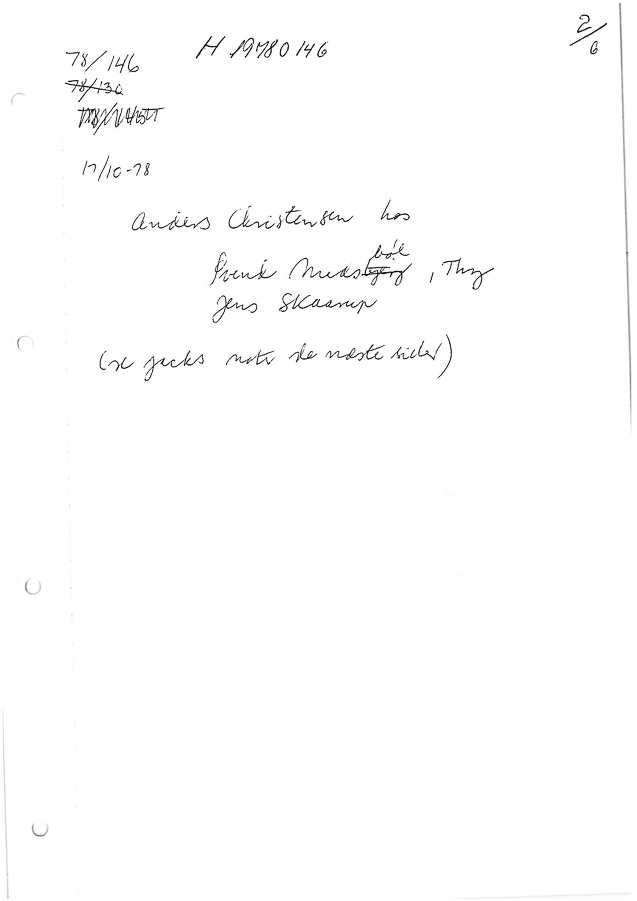 2/6
H 19780146
78/146
78/130
17/10-78
Anders Christensen hos
Svend Mads bøl, Thy
Jens Skaarup
(se jacks note de næste sider)